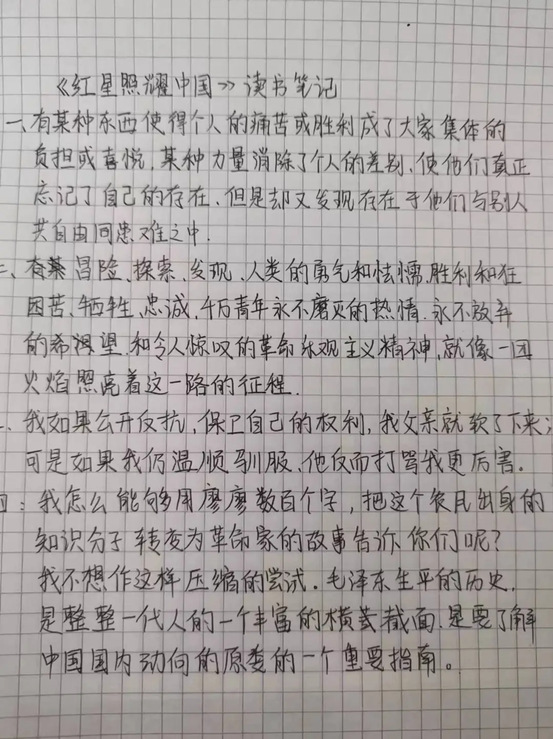 《红星照耀中国》读书笔记
一、有某种东西使得个人的痛苦或胜利成了大家集体的
负担或喜悦,某种力量消除了个人的差别,使他们真正
忘记了自己的存在,但是却又发现存在于他们与别人
共自由同患难之中.
二、有冒险、探索、发现、人类的勇气和怯懦,胜利和狂
困苦、牺牲、忠诚,千万青年永不磨灭的热情.永不放弃
的希望和令人惊叹的革命乐观主义精神,就像一团
火焰照亮着这一路的征程.
三、我如果公开反抗,保卫自己的权利,我父亲就软了下来;
可是如果我仍温顺驯服,他反而打骂我更厉害.
四:我怎么能够用廖廖数百个字,把这个农民出身的
知识分子转变为革命家的故事告诉你们呢?
我不想作这样压缩的尝试.毛泽东生平的历史,
是整整一代人的一个丰富的横截面,是要了解
中国国内动向的原委的一个重要指南。